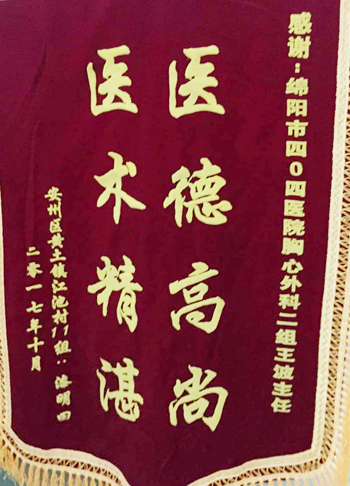 感谢:绵阳市四0四医院胸心外科二组王波主任
医德高尚
医术精湛
安州区黄土镇江池村11组:漆明四
二零一七年十月